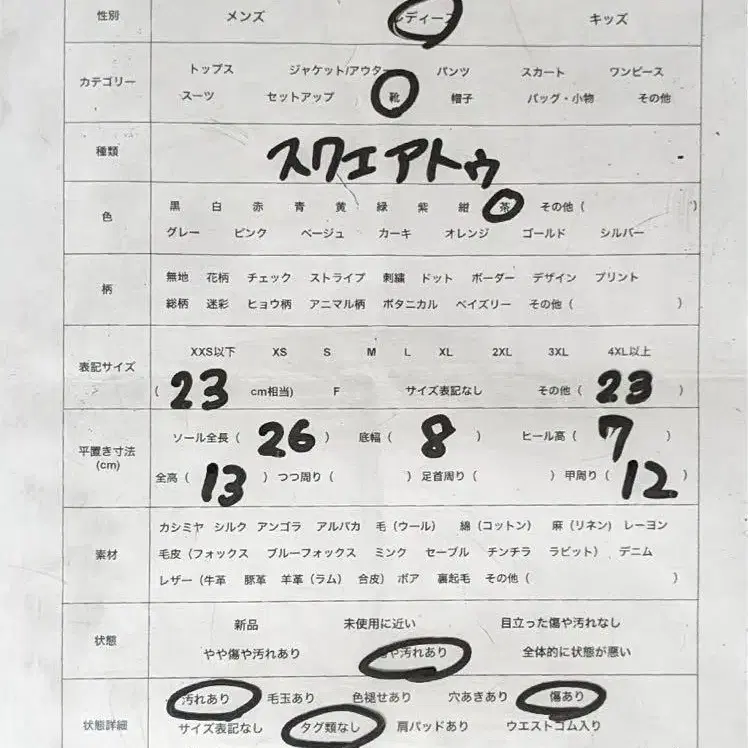 性別 メンズ レディース キッズ
カテゴリー トップス ジャケット/アウター パンツ スカート ワンピース
スーツ セットアップ 靴 帽子 バッグ・小物 その他
種類 スクエアトゥ
色 黒 白 赤 青 黄 緑 紫 紺 茶 その他 ( )
グレー ピンク ベージュ カーキ オレンジ ゴールド シルバー
柄 無地 花柄 チェック ストライプ 刺繍 ドット ボーダー デザイン プリント
総柄 迷彩 ヒョウ柄 アニマル柄 ボタニカル ペイズリー その他 ( )
表記サイズ XXS以下 XS S M L XL 2XL 3XL 4XL以上
( 23 cm相当) F サイズ表記なし その他 ( 23 )
平置き寸法 (cm) ソール全長 ( 26 ) 底幅 ( 8 ) ヒール高 ( 7 )
全高 ( 13 ) つつ周り ( ) 足首周り ( ) 甲周り ( 12 )
素材 カシミヤ シルク アンゴラ アルパカ 毛 (ウール) 綿 (コットン) 麻 (リネン) レーヨン
毛皮 (フォックス ブルーフォックス ミンク セーブル チンチラ ラビット) デニム
レザー (牛革 豚革 羊革 (ラム) 合皮) ボア 裏起毛 その他 ( )
状態 新品 未使用に近い 目立った傷や汚れなし
やや傷や汚れあり や汚れあり 全体的に状態が悪い
状態詳細 汚れあり 毛玉あり 色褪せあり 穴あきあり 傷あり
サイズ表記なし タグ類なし 肩パッドあり ウエストゴム入り